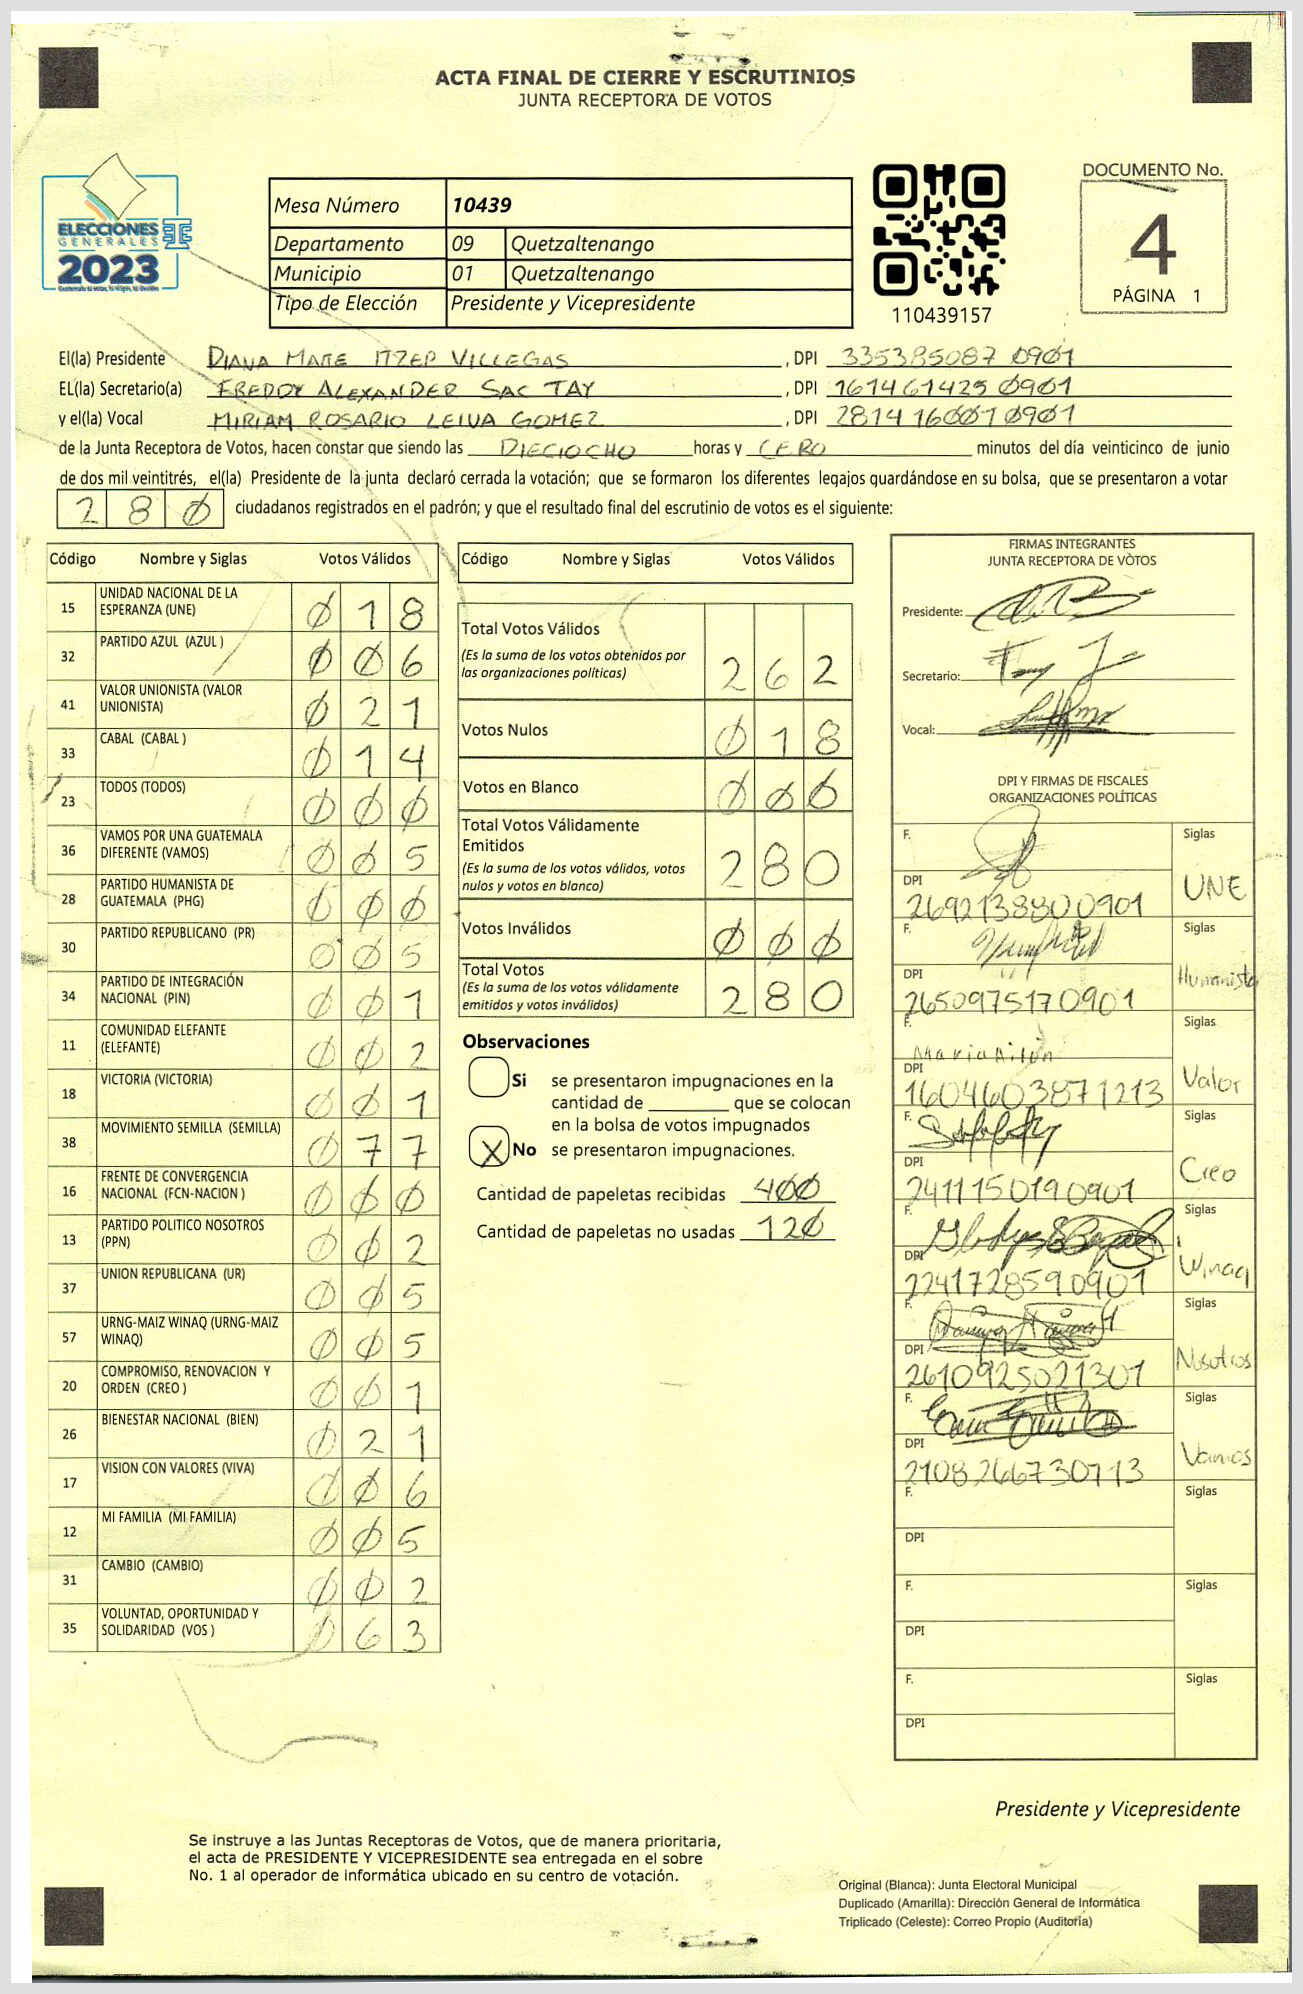 ACTA FINAL DE CIERRE Y ESCRUTINIOS
JUNTA RECEPTORA DE VOTOS
ELECCIONES
GENERALES
2023
Mesa Número 10439
Departamento 09 Quetzaltenango
Municipio 01 Quetzaltenango
Tipo de Elección Presidente y Vicepresidente
110439157
DOCUMENTO No.
4
PÁGINA 1
El(la) Presidente DIANA MATE ITZEP VILLEGAS, DPI 335385087 0901
EL(la) Secretario(a) FREDDY ALEXANDER SAC TAY, DPI 161461425 0901
y el(la) Vocal MIRIAM ROSARIO LEIVA GOMEZ, DPI 2814 16001 0901
de la Junta Receptora de Votos, hacen constar que siendo las DIECIOCHO horas y CERO minutos del día veinticinco de junio
de dos mil veintitrés, el(la) Presidente de la junta declaró cerrada la votación; que se formaron los diferentes legajos guardándose en su bolsa, que se presentaron a votar
280 ciudadanos registrados en el padrón; y que el resultado final del escrutinio de votos es el siguiente:
Código Nombre y Siglas Votos Válidos
15 UNIDAD NACIONAL DE LA ESPERANZA (UNE) 018
32 PARTIDO AZUL (AZUL ) 006
41 VALOR UNIONISTA (VALOR UNIONISTA) 021
33 CABAL (CABAL ) 014
23 TODOS (TODOS) 000
36 VAMOS POR UNA GUATEMALA DIFERENTE (VAMOS) 005
28 PARTIDO HUMANISTA DE GUATEMALA (PHG) 000
30 PARTIDO REPUBLICANO (PR) 005
34 PARTIDO DE INTEGRACIÓN NACIONAL (PIN) 001
11 COMUNIDAD ELEFANTE (ELEFANTE) 002
18 VICTORIA (VICTORIA) 001
38 MOVIMIENTO SEMILLA (SEMILLA) 077
16 FRENTE DE CONVERGENCIA NACIONAL (FCN-NACION ) 000
13 PARTIDO POLITICO NOSOTROS (PPN) 002
37 UNION REPUBLICANA (UR) 005
57 URNG-MAIZ WINAQ (URNG-MAIZ WINAQ) 005
20 COMPROMISO, RENOVACION Y ORDEN (CREO ) 001
26 BIENESTAR NACIONAL (BIEN) 021
17 VISION CON VALORES (VIVA) 006
12 MI FAMILIA (MI FAMILIA) 005
31 CAMBIO (CAMBIO) 002
35 VOLUNTAD, OPORTUNIDAD Y SOLIDARIDAD (VOS ) 063
Código Nombre y Siglas Votos Válidos
Total Votos Válidos 262
(Es la suma de los votos obtenidos por
las organizaciones políticas)
Votos Nulos 018
Votos en Blanco 000
Total Votos Válidamente
Emitidos 280
(Es la suma de los votos válidos, votos
nulos y votos en blanco)
Votos Inválidos 000
Total Votos 280
(Es la suma de los votos válidamente
emitidos y votos inválidos)
Observaciones
Si se presentaron impugnaciones en la
cantidad de ________ que se colocan
en la bolsa de votos impugnados
X No se presentaron impugnaciones.
Cantidad de papeletas recibidas 400
Cantidad de papeletas no usadas 120
FIRMAS INTEGRANTES
JUNTA RECEPTORA DE VOTOS
Presidente:
Secretario:
Vocal:
DPI Y FIRMAS DE FISCALES
ORGANIZACIONES POLÍTICAS
F. Siglas
DPI UNE
2692138800901
F. Siglas
DPI Humanista
2650975170901
F. Siglas
DPI Valor
1604603871213
F. Siglas
DPI Creo
2411150190901
F. Siglas
DPI Winaq
2241728590901
F. Siglas
DPI Nosotros
2610925021301
F. Siglas
DPI Vamos
2108266730713
F. Siglas
DPI
F. Siglas
DPI
F. Siglas
DPI
Presidente y Vicepresidente
Se instruye a las Juntas Receptoras de Votos, que de manera prioritaria,
el acta de PRESIDENTE Y VICEPRESIDENTE sea entregada en el sobre
No. 1 al operador de informática ubicado en su centro de votación.
Original (Blanca): Junta Electoral Municipal
Duplicado (Amarilla): Dirección General de Informática
Triplicado (Celeste): Correo Propio (Auditoría)